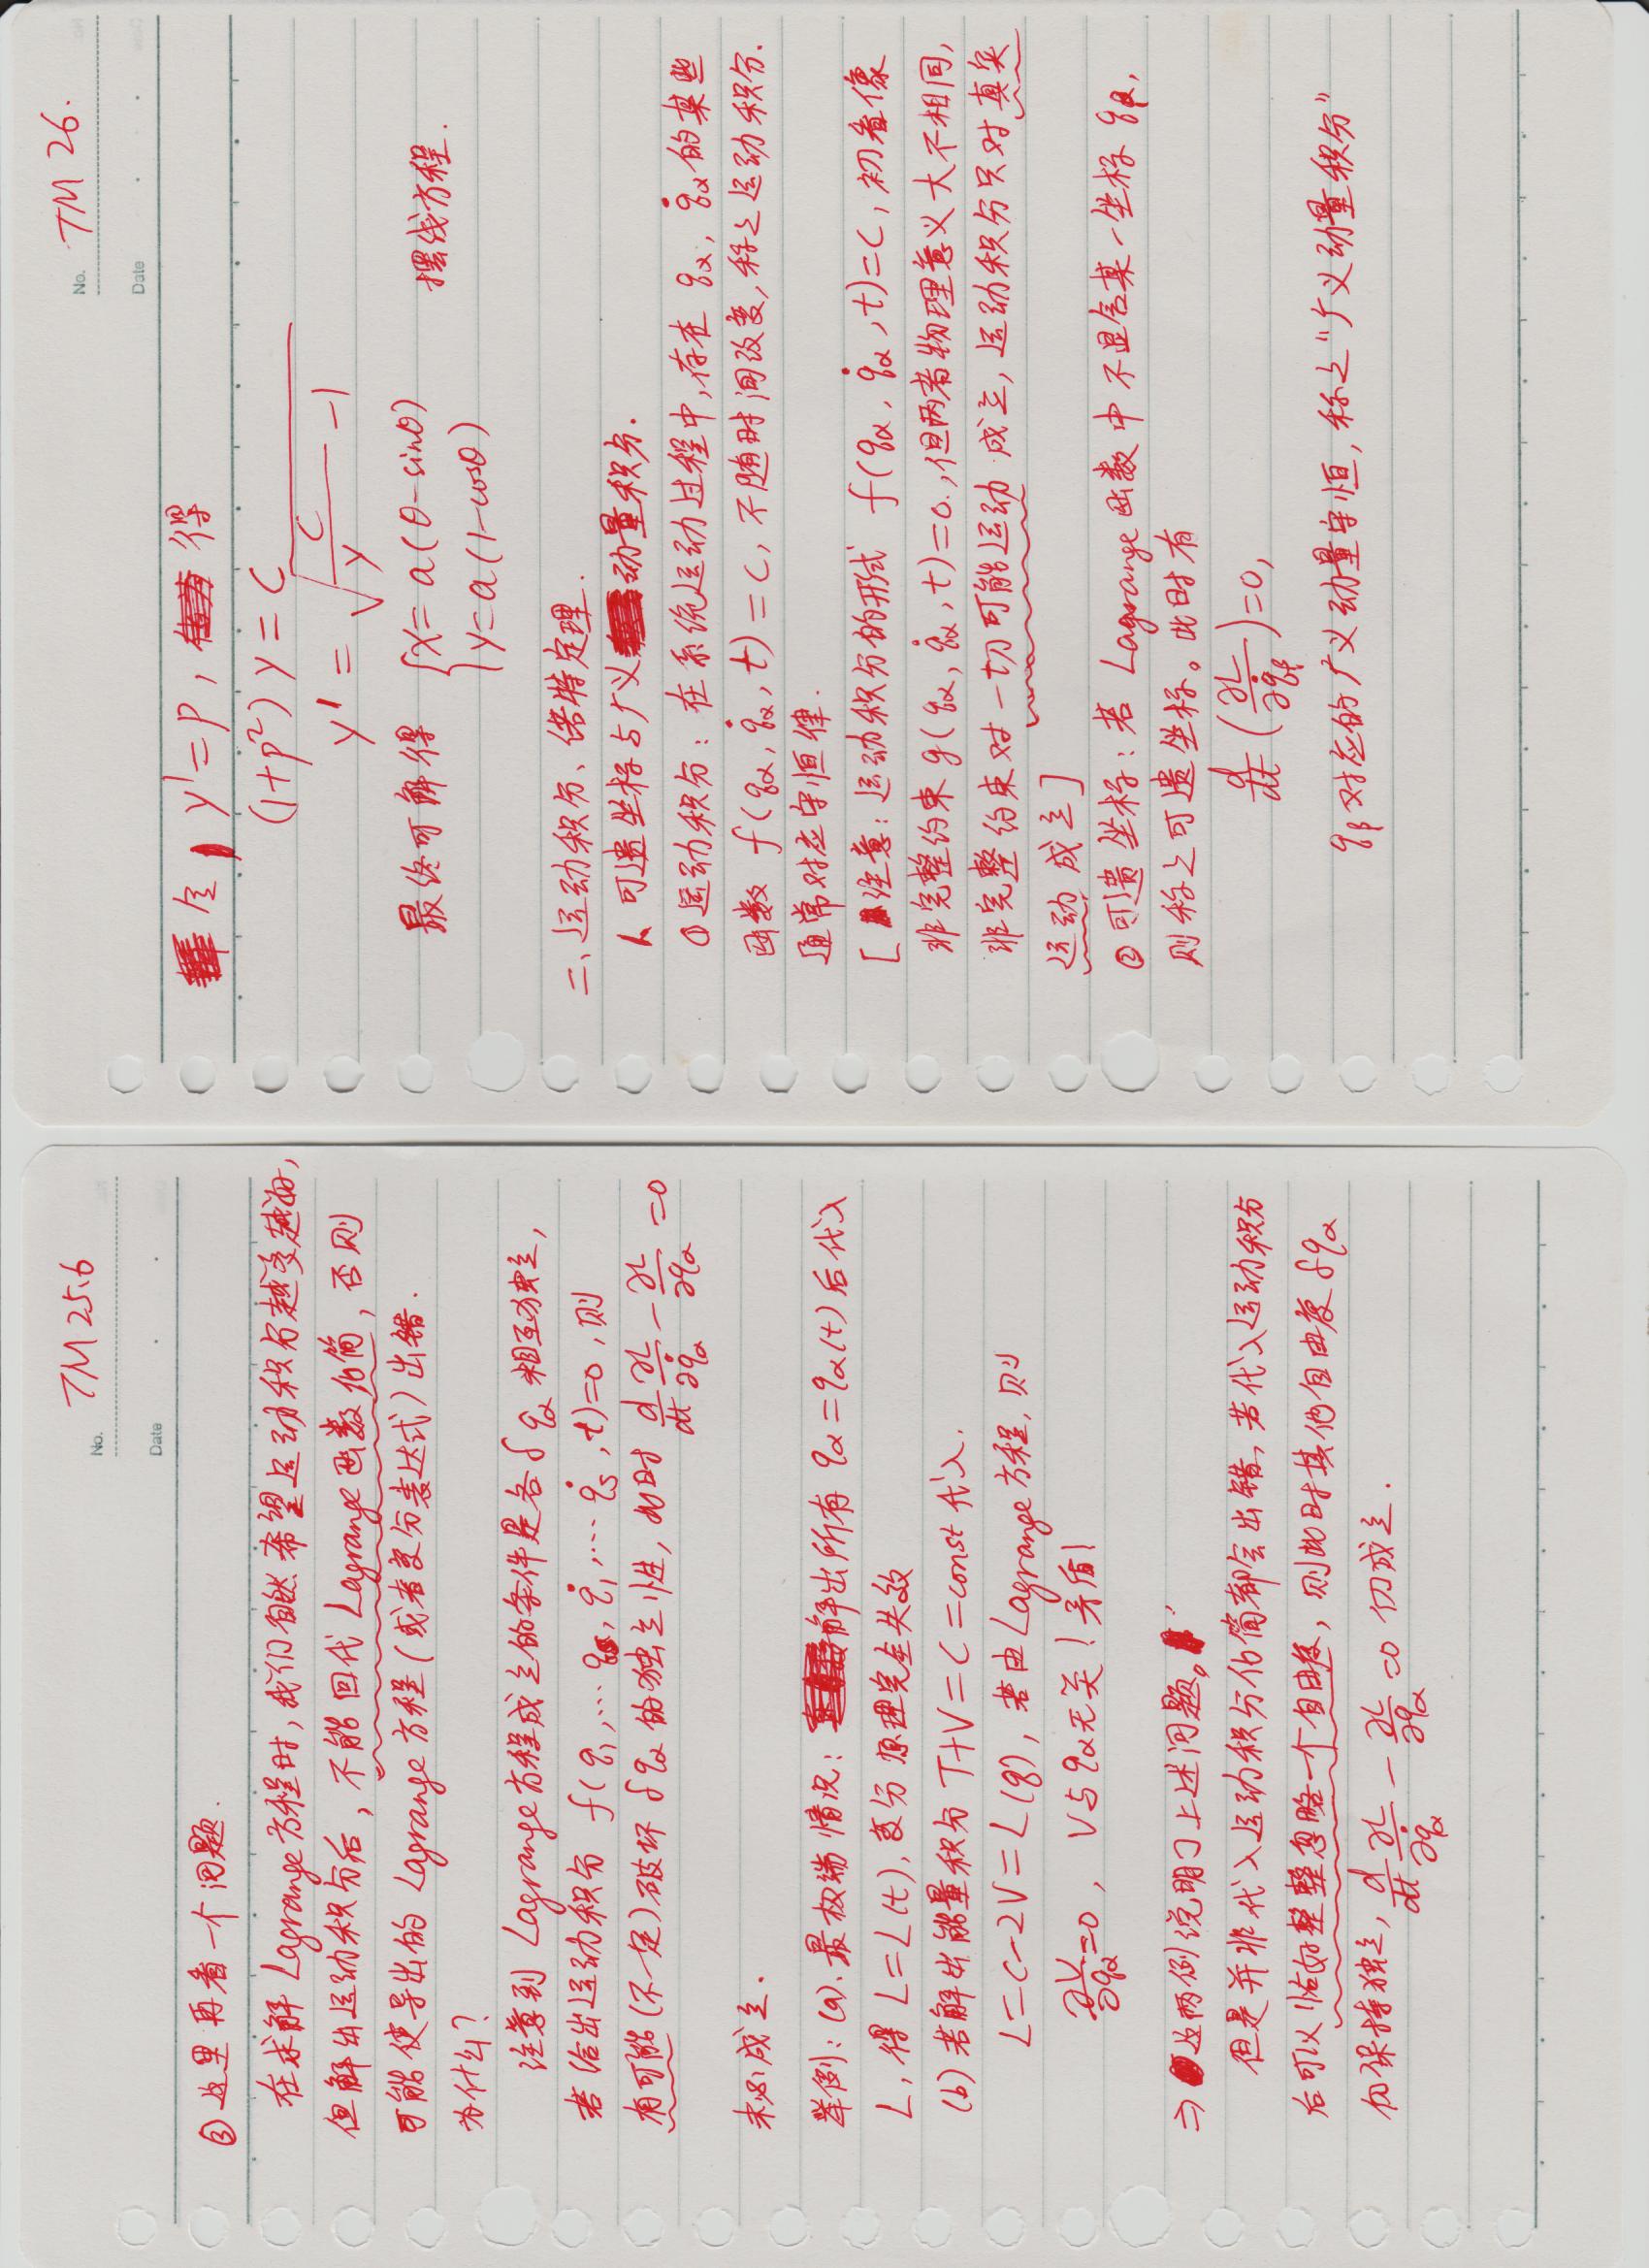 No. TM 25.6
Date
③ 这里再看一个问题.
在求解 Lagrange 方程时, 我们自然希望运动积分越多越好,
但解出运动积分后, 不能回代 Lagrange 函数化简, 否则
可能使导出的 Lagrange 方程 (或者变分表达式) 出错.
为什么?
注意到 Lagrange 方程成立的条件是各 δqα 相互独立,
若给出运动积分 f(q₁, … qₛ, q̇₁, … q̇ₛ, t)=0, 则
有可能 (不一定) 破坏 δqα 的独立性, 此时 d/dt ∂L/∂q̇α − ∂L/∂qα = 0
未必成立.
举例: (a). 最极端情况: 解出所有 qα = qα(t) 后代入
L, 得 L=L(t), 变分原理完全失效
(b) 若解出能量积分 T+V=C=const 代入.
L=C-2V=L(q), 若由 Lagrange 方程, 则
∂V/∂qα=0, V与qα无关! 矛盾!
⇒ 这两例说明了上述问题。
但是并非代入运动积分化简都会出错, 若代入运动积分
后可以恰好整整忽略一个自由度, 则此时其他自由度 δqα
仍保持独立, d/dt ∂L/∂q̇α − ∂L/∂qα = 0 仍成立.
No. TM 26.
Date
令 y'=p, 得
(1+p²) y = C
y' = √(C/y − 1)
最终可解得 { x= a(θ-sinθ) 摆线方程.
y=a(1-cosθ)
二、运动积分、诺特定理.
1. 可遗坐标与广义动量积分.
① 运动积分: 在系统运动过程中, 存在 qα, q̇α 的某些
函数 f(qα, q̇α, t) = C, 不随时间改变, 称之运动积分.
通常对应守恒律.
[ 注意: 运动积分的形式 f(qα, q̇α, t)=C, 初看像
非完整约束 g(qα, q̇α, t)=0., 但两者物理意义大不相同,
非完整约束对一切可能运动成立, 运动积分只对真实
运动成立 ]
② 可遗坐标: 若 Lagrange 函数中不显含某一坐标 qβ,
则称之可遗坐标。此时有
d/dt (∂L/∂q̇β)=0,
qβ 对应的广义动量守恒, 称之"广义动量积分"